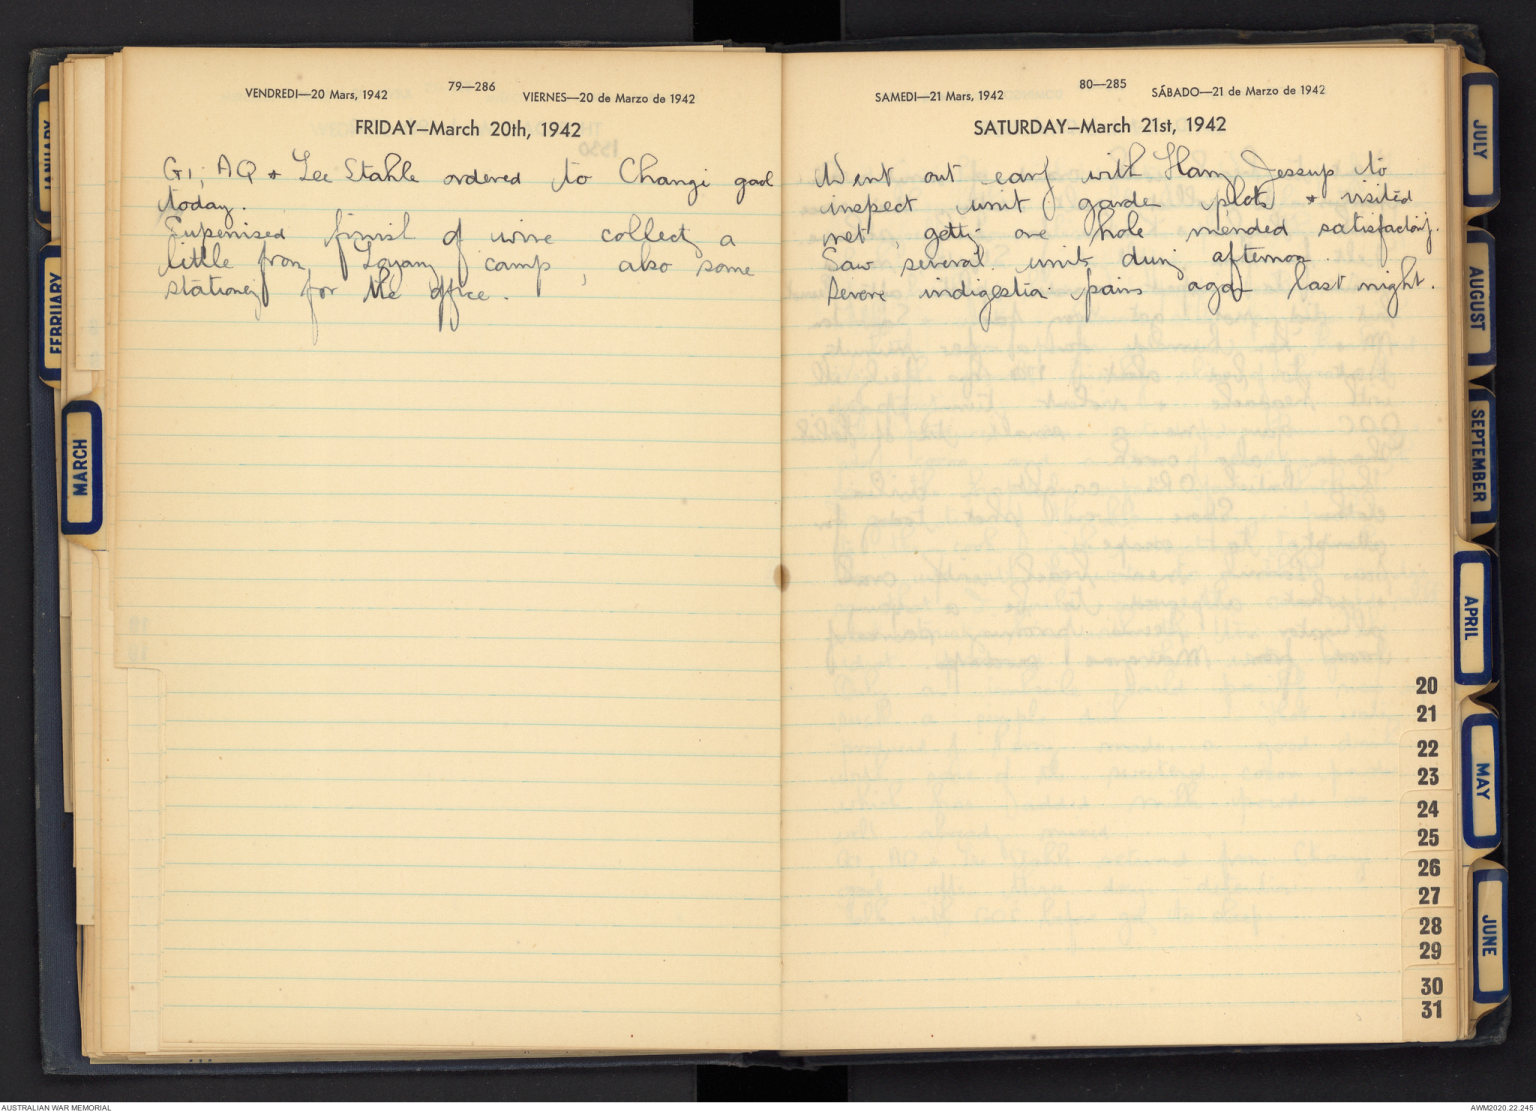 VENDREDI—20 Mars, 1942
79—286
VIERNES—20 de Marzo de 1942
FRIDAY—March 20th, 1942
G1, AQ & Lee Stahle ordered to Changi gaol
today.
Supervised finish of wire collectg a
little from Loyang camp, also some
stationery for the office.
SAMEDI—21 Mars, 1942
80—285
SÁBADO—21 de Marzo de 1942
SATURDAY—March 21st, 1942
Went out early with Harry Jessup to
inspect unit garden plots & visited
net, getting one hole mended satisfactorily.
Saw several units during afternoon.
Severe indigestion pains again last night.
JANUARY
FEBRUARY
MARCH
JULY
AUGUST
SEPTEMBER
APRIL
MAY
JUNE
20
21
22
23
24
25
26
27
28
29
30
31
AUSTRALIAN WAR MEMORIAL
AWM2020.22.245